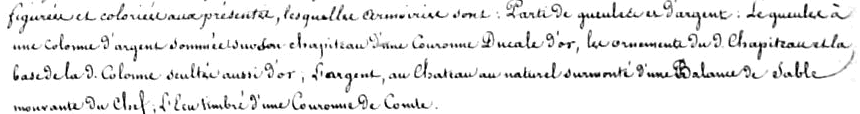 figurées et coloriées aux présentes, lesquelles Armoiries sont : Parti de gueules et d'argent : Le gueules à
une colonne d'argent sommée sur son chapiteau d'une Couronne Ducale d'or, les ornements du d. Chapiteau et la
base de la d. Colonne sculté aussi d'or ; L'argent, au Chateau au naturel surmonté d'une Balance de Sable
mouvante du Chef ; L'Ecu timbré d'une Couronne de Comte.